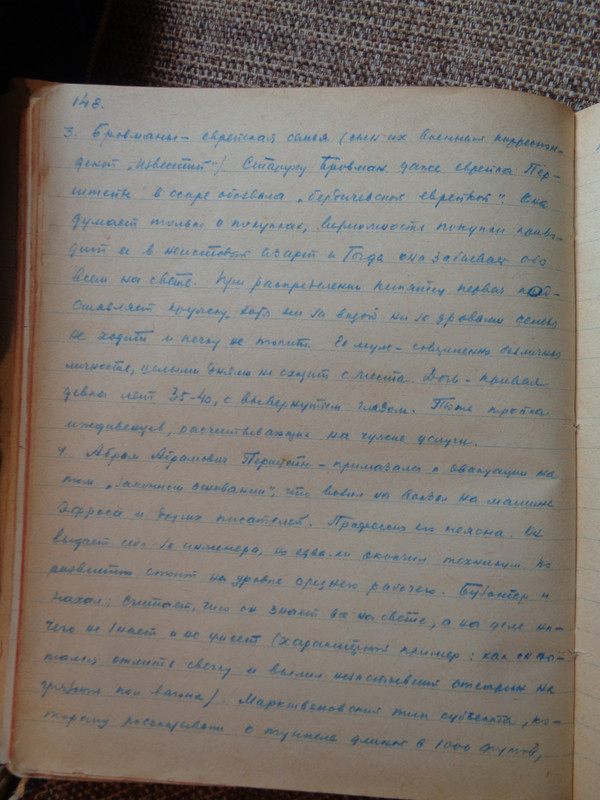 146.
3. Бровманы – еврейская семья (отец их военный корреспон-
дент „Известий“). Старуху Бровман даже еврейка Пер-
штейн в ссоре обозвала „бердичевской еврейкой“. Она
думает только о покупках, возможность покупки приво-
дит её в неистовый азарт и тогда она забывает обо
всем на свете. При распределении кипятку первая под-
ставляет кружку, хотя ни за водой ни за дровами семья
не ходит и печку не топит. Ее муж – совершенно безличная
личность, целыми днями не сходит с места. Дочь – кривая
девка лет 35-40, с вывернутым глазом. Тоже тройка
иждивенцев, рассчитывающих на чужие услуги.
4. Абрам Абрамович Перштейн – примазался к эвакуации на
том „законном основании“, что возил на вокзал на машине
Эфроса и других писателей. Профессия его неясна. Он
выдает себя за инженера, но едва-ли окончил техникум по
развитию стоит на уровне среднего рабочего. Бузотер и
нахал; считает, что он знает все на свете, а на деле ни-
чего не знает и не умеет (характерный пример: как он пы-
тался отлить свечку и вылил незастывший стеарин на
грязный пол вагона). Марктвеновский тип субъекта, ко-
торому рассказывали о туннеле длиной в 1000 футов,